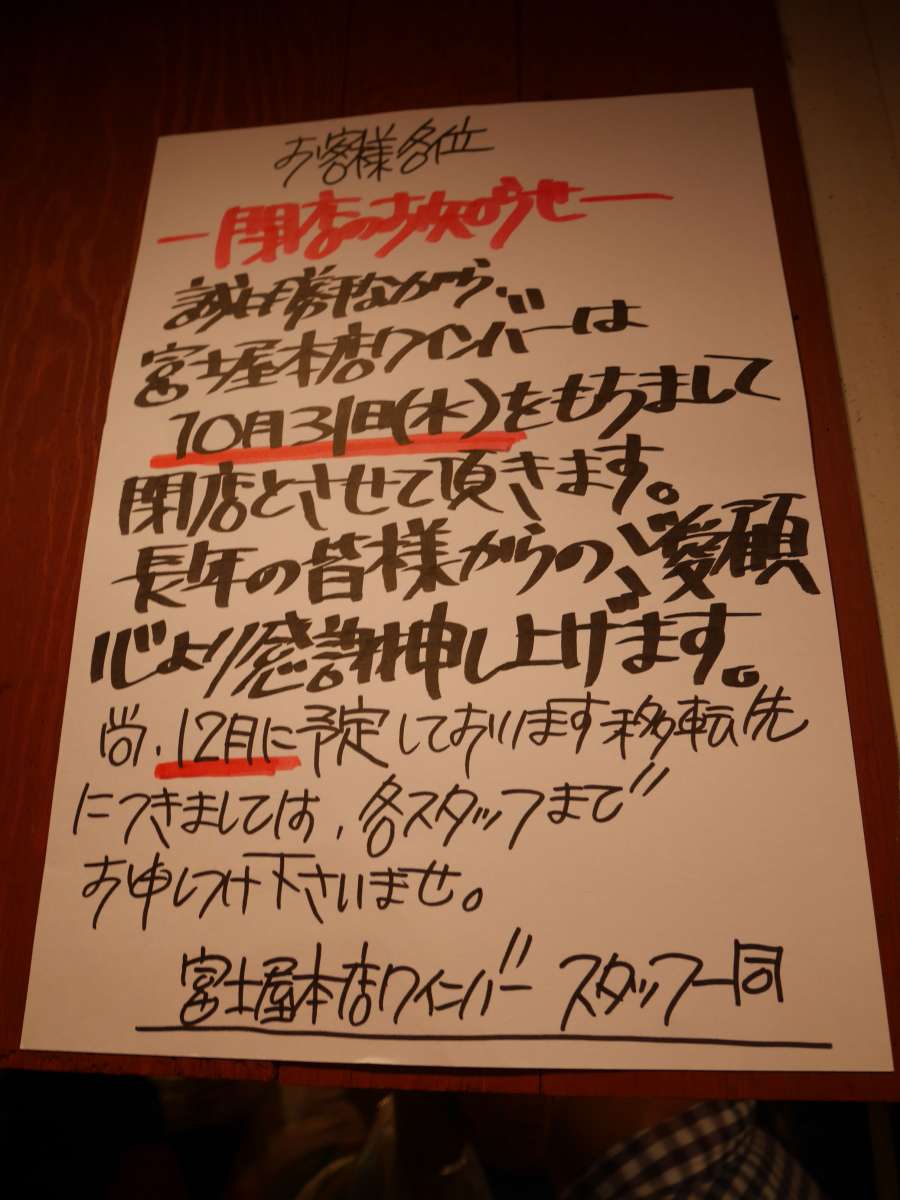 お客様各位
ー閉店のお知らせー
誠に勝手ながら、
富士屋本店ワインバーは
10月31日(水)をもちまして
閉店とさせて頂きます。
長年の皆様からのご愛顧
心より感謝申し上げます。
尚、12月に予定しております移転先
につきましては、各スタッフまで
お申しつけ下さいませ。
富士屋本店ワインバー スタッフ一同